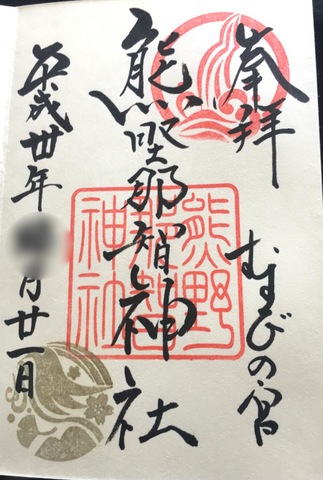 奉拝
むすびの宮
熊野那智神社
平成卅年
月廿一日
熊野
那智
神社